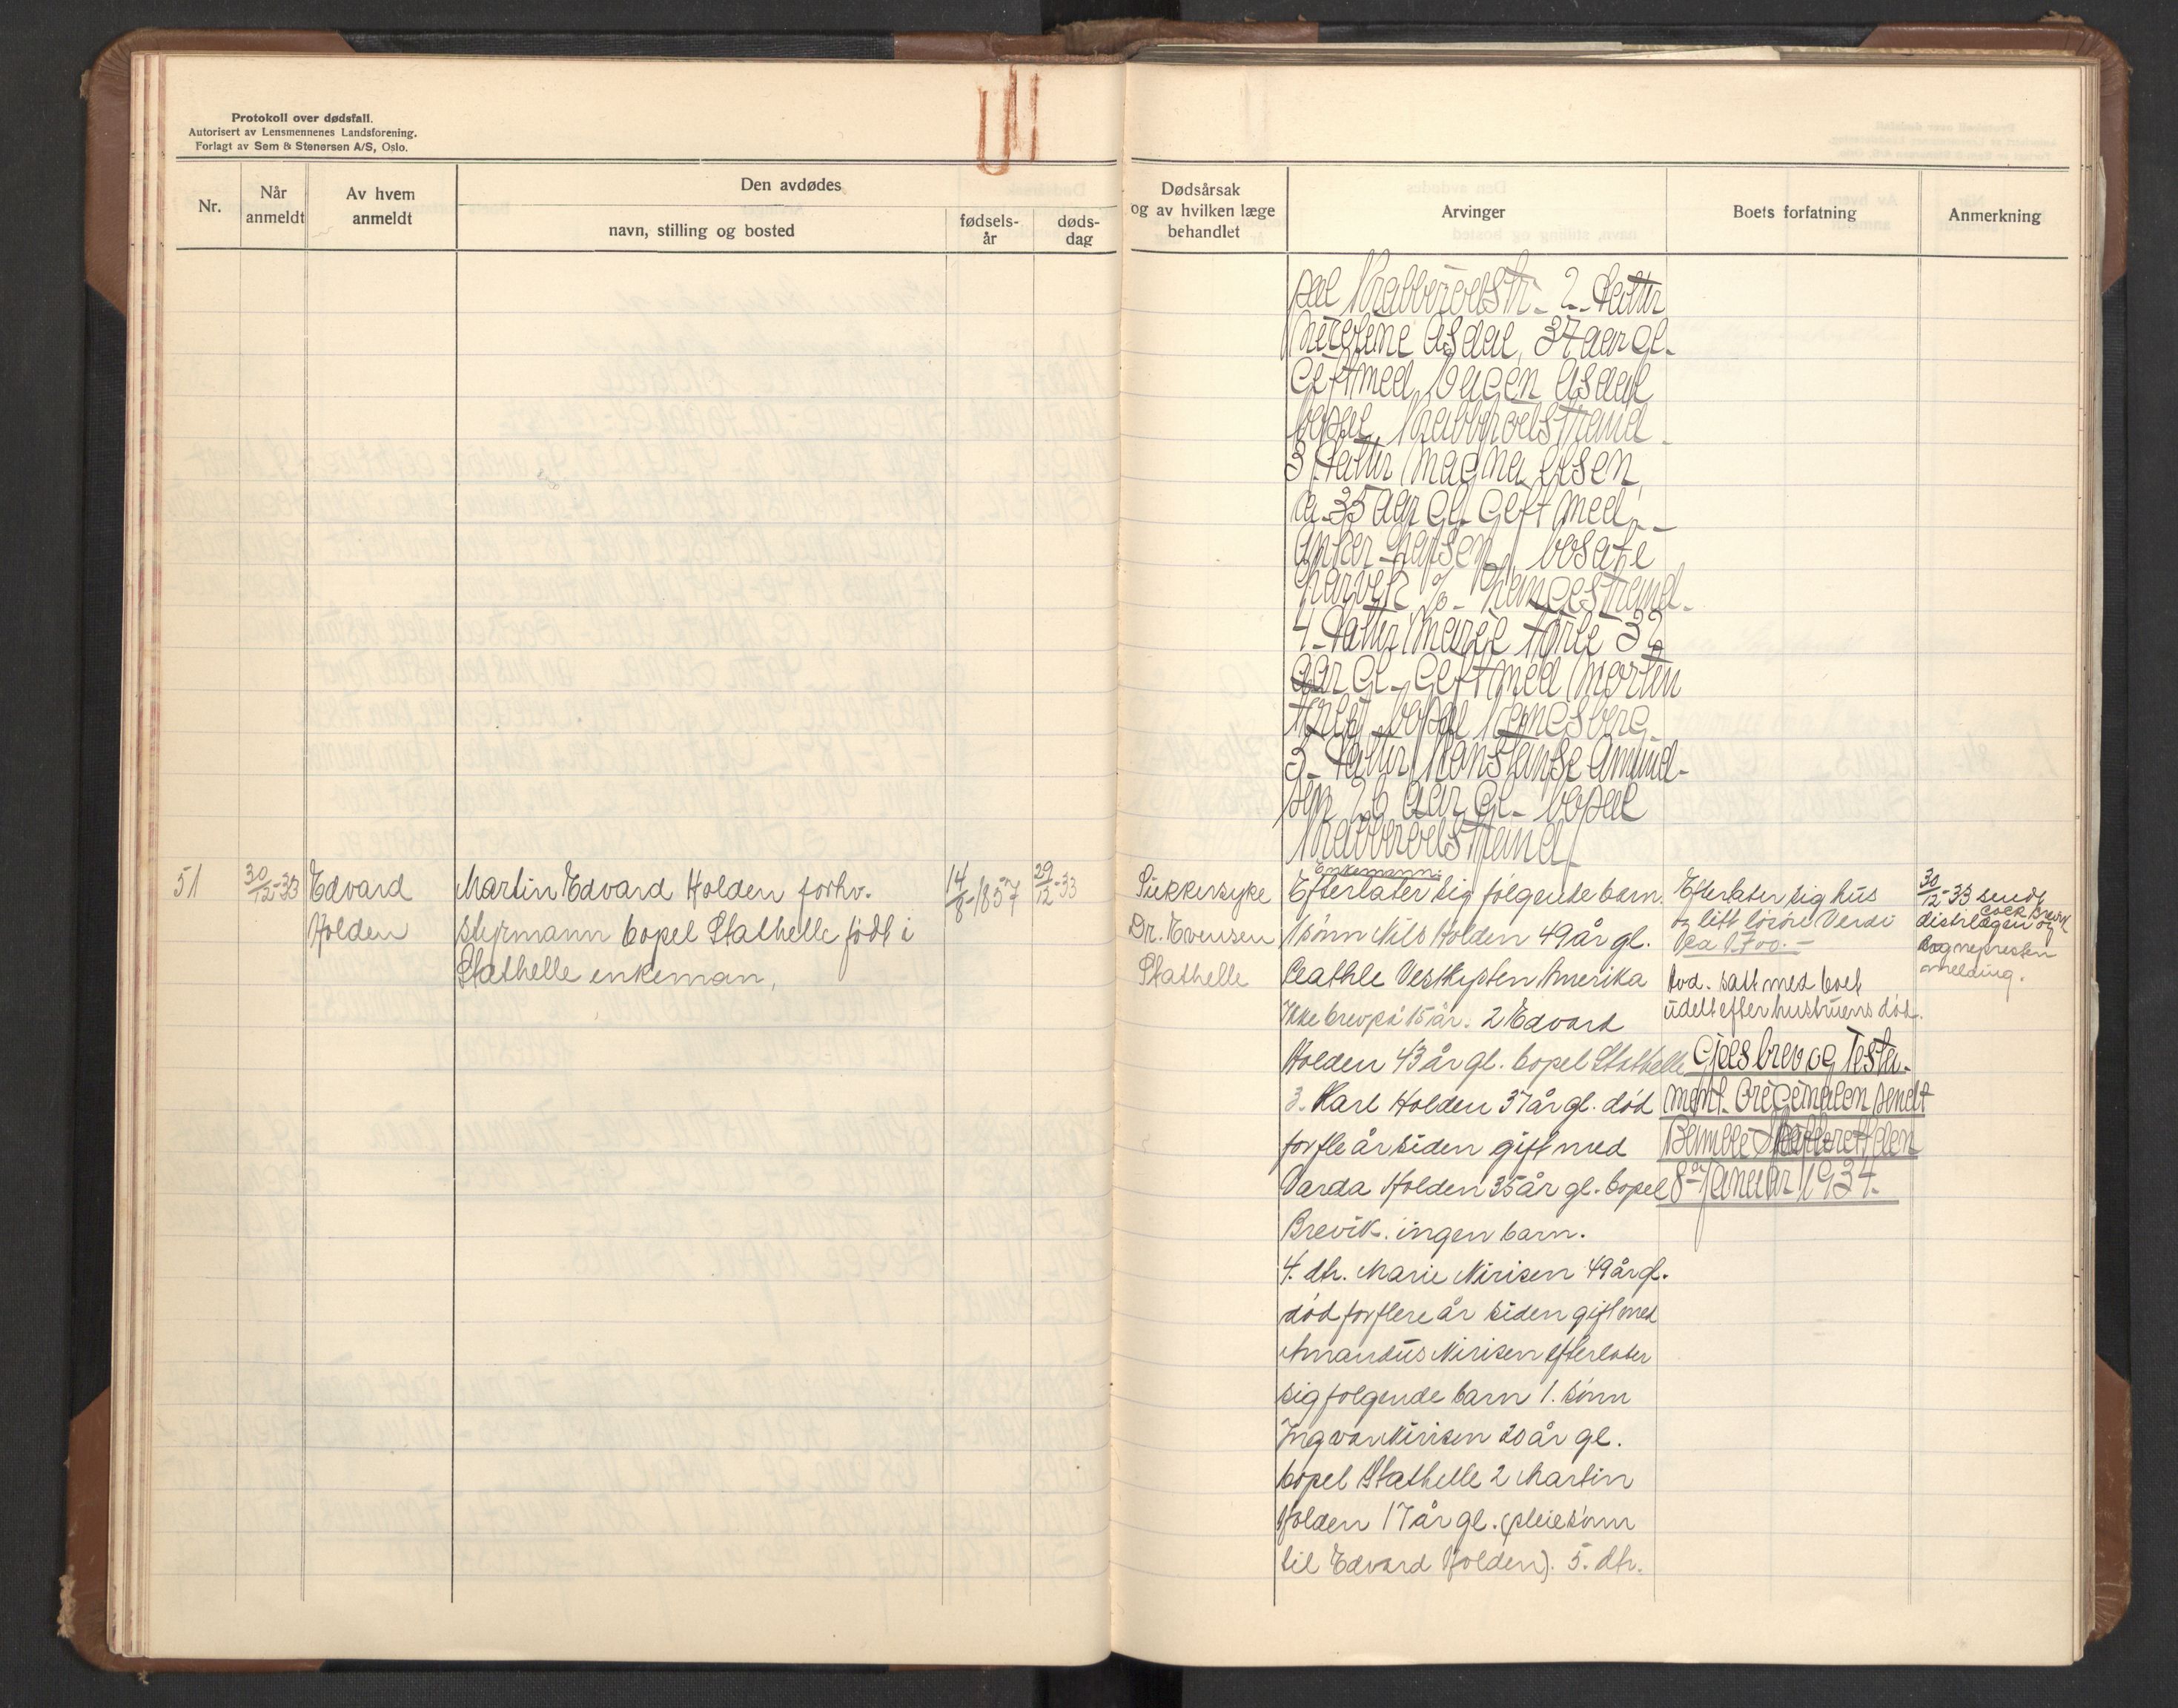 Protokoll over dødsfall.
Autorisert av Lensmennenes Landsforening.
Forlagt av Sem & Stenersen A/S, Oslo.
Nr.
Når
anmeldt
Av hvem
anmeldt
Den avdødes
navn, stilling og bosted
fødsels-
år
døds-
dag
Dødsårsak
og av hvilken læge
behandlet
Arvinger
Boets forfatning
Anmerkning
pæl Krabberødstr. 2 Datter
Nicoline Asdal, 37 aar gl.
Gift med Asdal
bopæl Krabberødstrand
3 Datter Magna
ca. 35 aar gl. Gift med
bosatt i
4. Datter Margit 32
aar gl. Gift med Martin
bopæl
5. Datter Konstanse Amund-
sen 26 aar gl. bopæl
Krabberødstrand
51
30/12-33
Edvard
Holden
Martin Edvard Holden forhv.
styrmann bopel Stathelle født i
Stathelle enkeman,
14/8-1857
29/12-33
Sukkersyke
Dr. Evensen
Stathelle
Enkemann:
Efterlater sig følgende barn.
1 sønn Nils Holden 49 år gl.
Vestkysten Amerika
Ikke brev på 15 år. 2 Edvard
Holden 43 år gl. bopel Stathelle
3. Karl Holden 37 år gl. død
for fle år siden gift med
Varda Holden 35 år gl. bopel
Brevik. ingen barn.
4. dtr. Marie Nirisen 49 år gl.
død for flere år siden gift med
Amandus Nirisen efterlater
sig følgende barn 1. sønn
Ingvar Nirisen 20 år gl.
bopel Stathelle 2 Martin
Holden 17 år gl. (pleiesønn
til Edvard Holden). 5. dtr.
Efterlater sig hus
og litt løsøre Verdi
ca 1700.-
Avd. satt med boet
udelt efter hustruens død.
Gjelsbrev og Testa-
ment. Originalen sendt
Bamble Skifteretten
8de Januar 1934.
30/12-33 sendt
distrlægen og
sognepresten
melding.